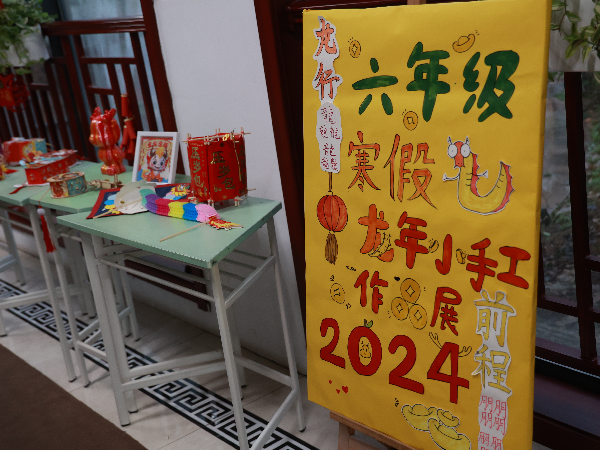 龙行龘龘
六年级
寒假
龙年小手工
作品展
2024
前程朤朤